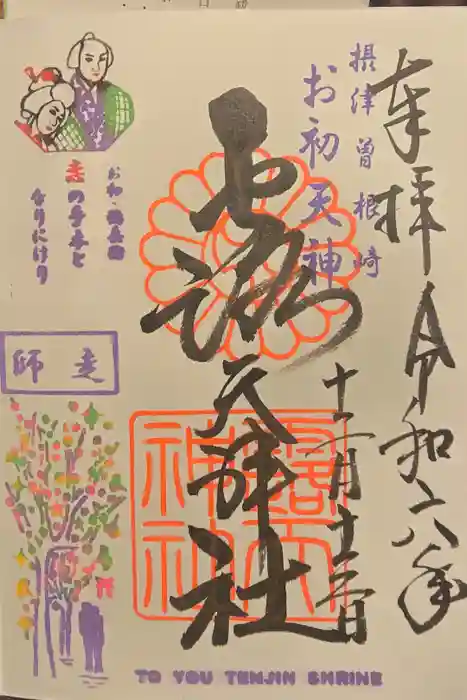 奉拝 令和六年
摂津曾根崎
お初天神
十二月
露天神社
露天神社
お初・徳兵衛
恋の手本と
なりにけり
師走
TO YOU TENJIN SHRINE